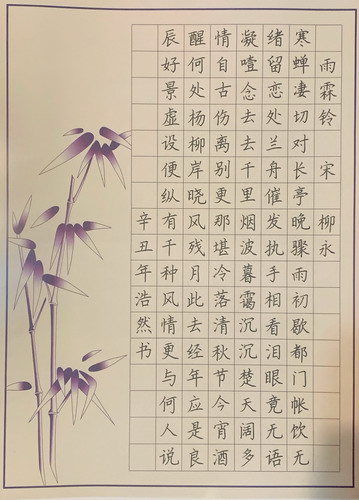 雨霖铃 宋 柳永
寒蝉凄切对长亭晚骤雨初歇都门帐饮无
绪留恋处兰舟催发执手相看泪眼竟无语
凝噎念去去千里烟波暮霭沉沉楚天阔多
情自古伤离别更那堪冷落清秋节今宵酒
醒何处杨柳岸晓风残月此去经年应是良
辰好景虚设便纵有千种风情更与何人说
辛丑年浩然书